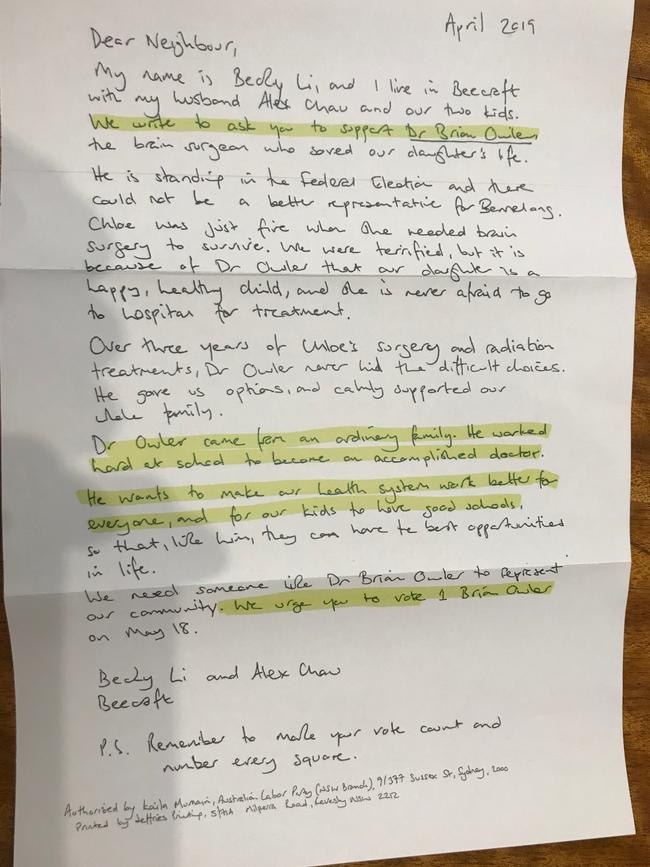 April 2019
Dear Neighbour,
My name is Becky Li, and I live in Beecroft
with my husband Alex Chau and our two kids.
We write to ask you to support Dr Brian Owler,
the brain surgeon who saved our daughter's life.
He is standing in the Federal Election and there
could not be a better representative for Bennelong.
Chloe was just five when she needed brain
surgery to survive. We were terrified, but it is
because of Dr Owler that our daughter is a
happy, healthy child, and she is never afraid to go
to hospital for treatment.
Over three years of Chloe's surgery and radiation
treatments, Dr Owler never hid the difficult choices.
He gave us options, and calmly supported our
whole family.
Dr Owler came from an ordinary family. He worked
hard at school to become an accomplished doctor.
He wants to make our health system work better for
everyone, and for our kids to have good schools,
so that, like him, they can have the best opportunities
in life.
We need someone like Dr Brian Owler to represent
our community. We urge you to vote 1 Brian Owler
on May 18.
Becky Li and Alex Chau
Beecroft
P.S. Remember to make your vote count and
number every square.
Authorised by Kaila Murnain, Australian Labor Party (NSW Branch), 9/377 Sussex St, Sydney, 2000
Printed by Jeffries Printing, 5/71A Milperra Road, Revesby NSW 2212